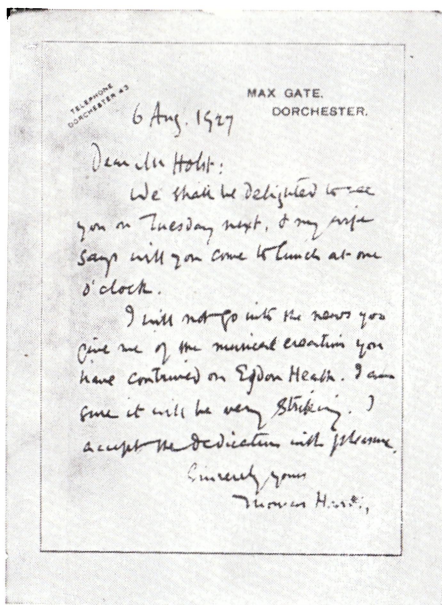 TELEPHONE
DORCHESTER 43
MAX GATE,
DORCHESTER.
6 Aug. 1927
Dear Mr Holst:
We shall be delighted to see
you on Tuesday next, & my wife
says will you come to lunch at one
o'clock.
I will not go into the news you
give me of the musical creation you
have contrived on Egdon Heath. I am
sure it will be very striking. I
accept the dedication with pleasure.
Sincerely yours
Thomas Hardy,